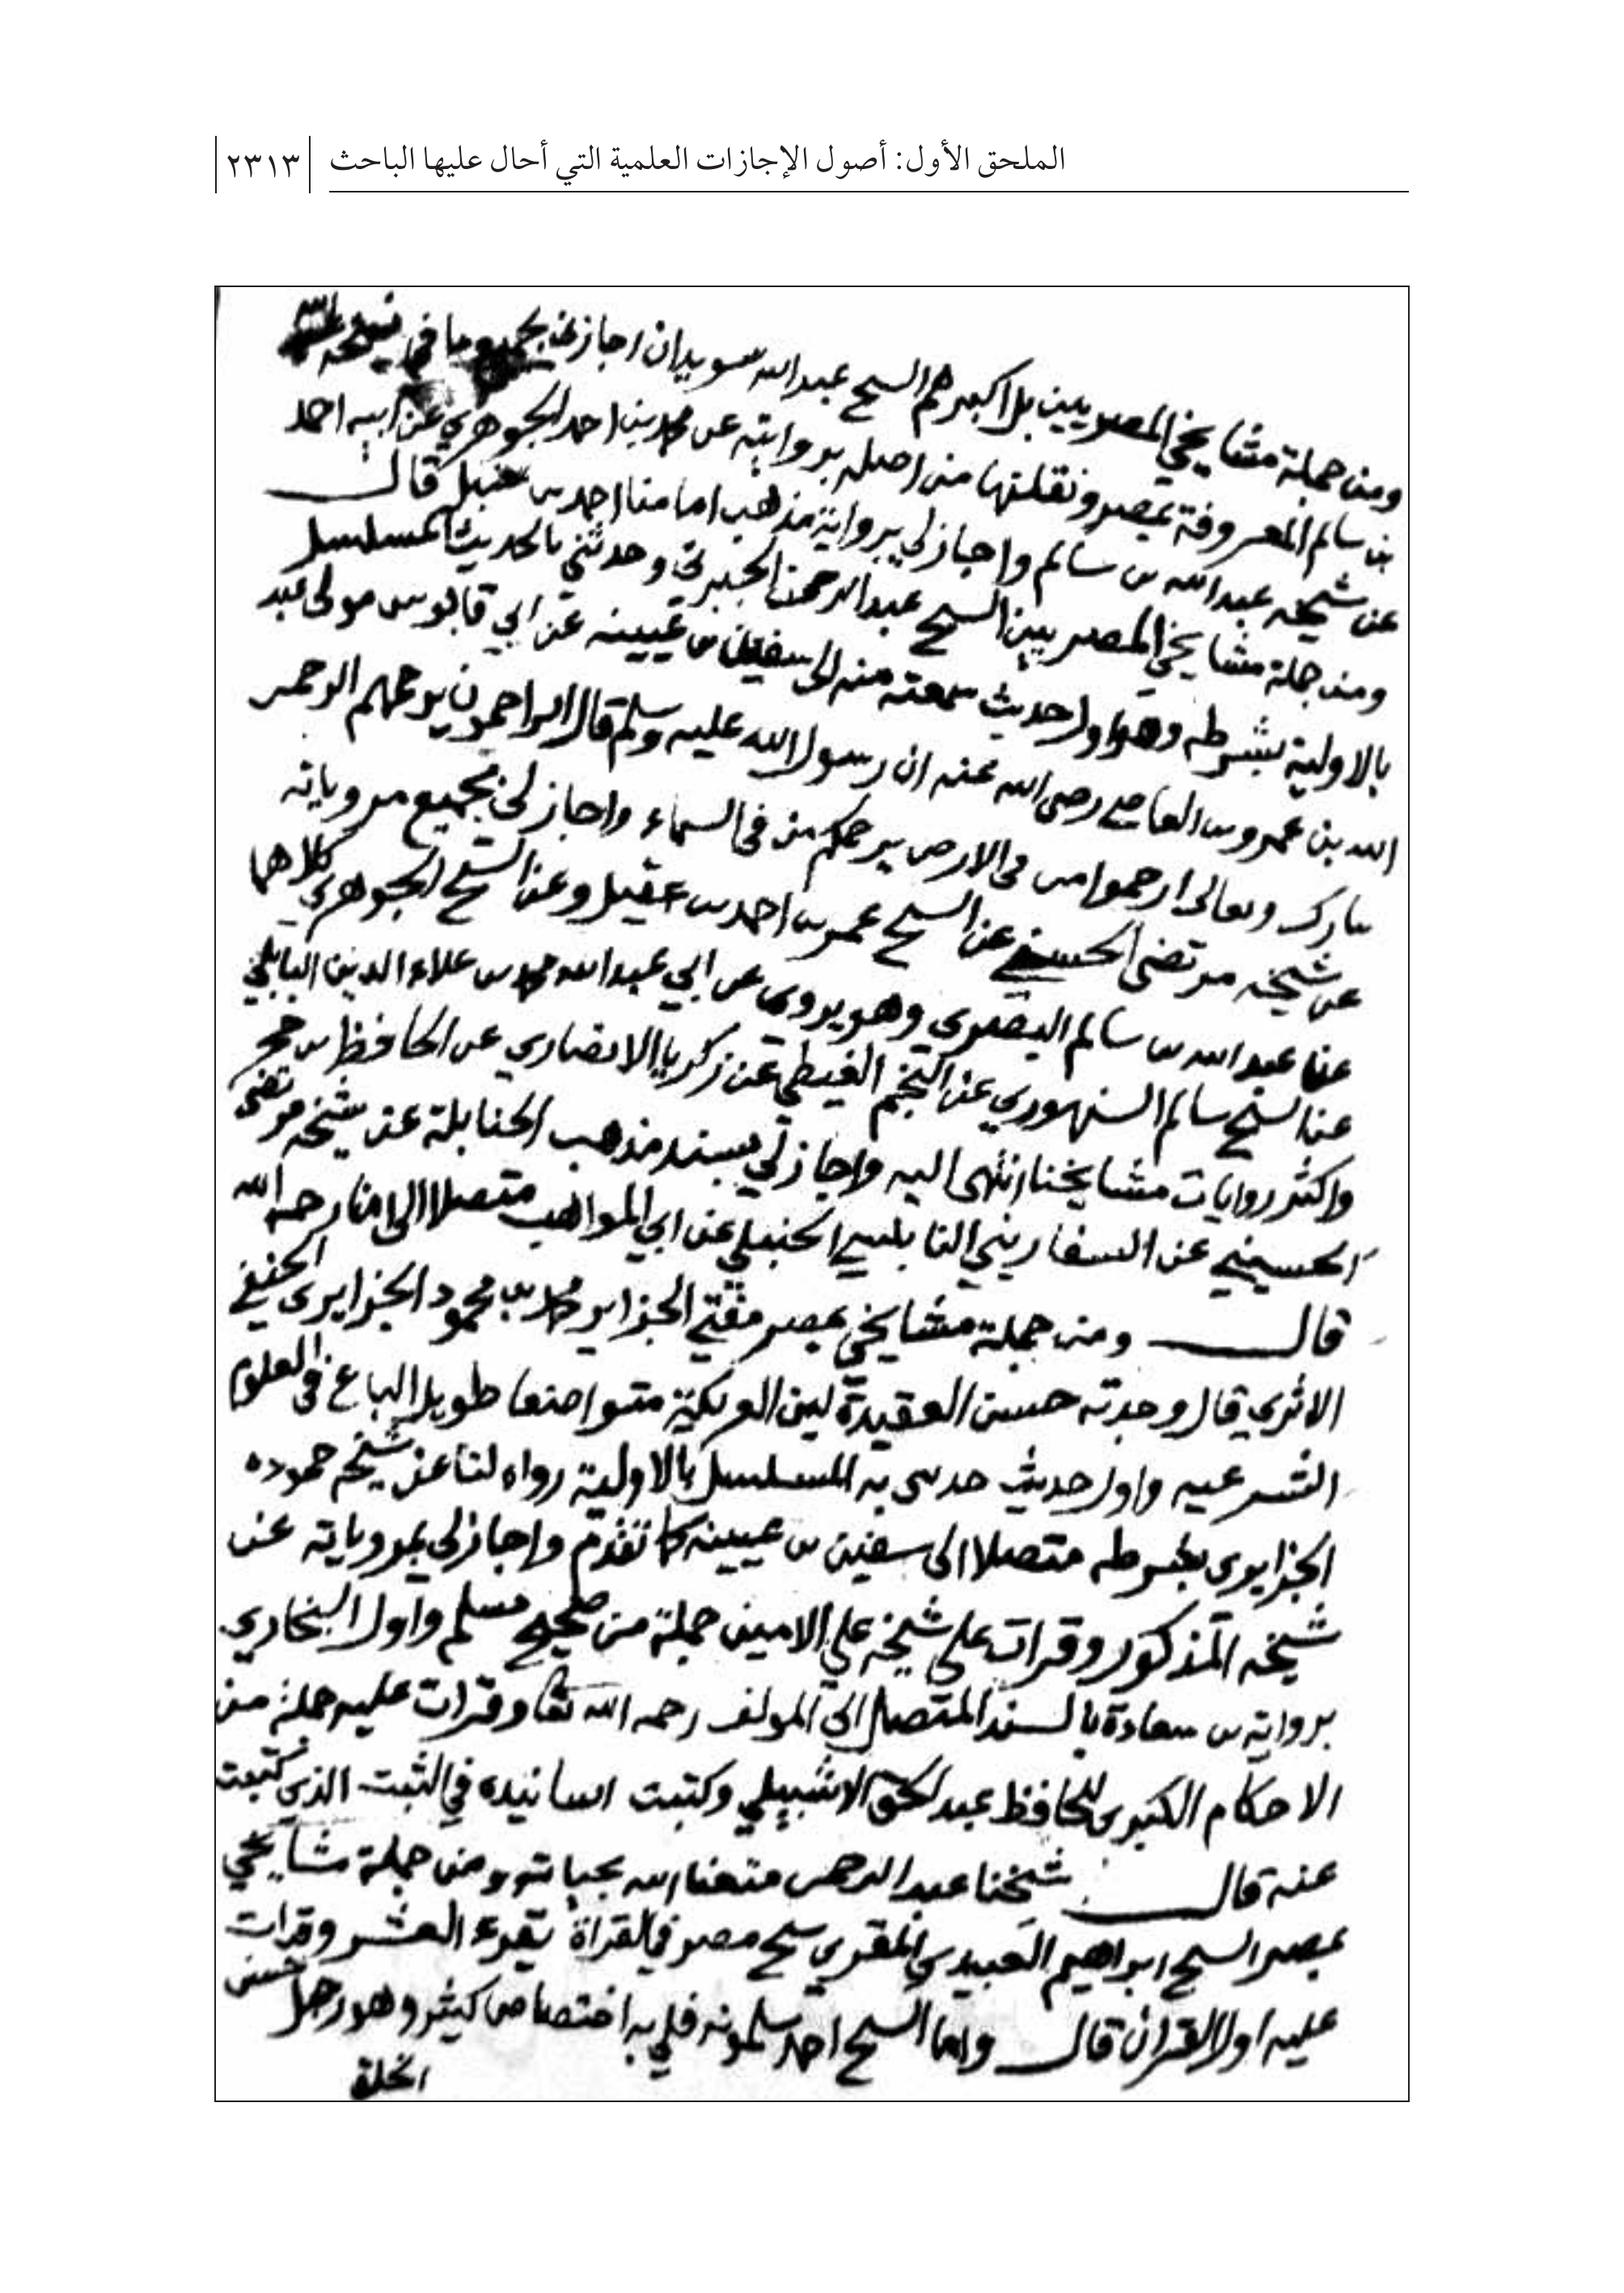 الملحق الأول: أصول الإجازات العلمية التي أحال عليها الباحث ٢٣١٣
ومن جملة مشايخي المصريين بل اكبرهم الشيخ عبدالله سويدان اجازني بجميع ما في نسخة
بن سالم المعروفة بمصر ونقلتها من اصله بروايته عن محمد بن احمد الجوهري عن ابيه احمد
عن شيخه عبدالله بن سالم واجاز لي برواية مذهب امامنا احمد بن حنبل قال
ومن جملة مشايخي المصريين الشيخ عبدالرحمن الجبرتي وحدثني بالحديث المسلسل
بالاولية بشرطه وهو اول حديث سمعته منه الى سفين بن عيينه عن ابي قابوس مولى عبد
الله بن عمرو بن العاصي رضي الله عنه ان رسول الله عليه وسلم قال الراحمون يرحمهم الرحمن
تبارك وتعالى ارحموا من في الارض يرحمكم من في السماء واجاز لي بجميع مروياته
عن شيخه مرتضى الحسيني عن الشيخ عمر بن احمد بن عقيل وعن الشيخ الجوهري كلاهما
عن عبدالله بن سالم البصري وهو يروي عن ابي عبدالله محمد بن علاء الدين البابلي
عن الشيخ سالم السنهوري عن النجم الغيطي عن زكريا الانصاري عن الحافظ بن حجر
واكثر روايات مشايخنا انتهى اليه واجاز لي بسند مذهب الحنابلة عن شيخه مرتضى
الحسيني عن السفاريني النابلسي الحنبلي عن ابي المواهب متصلا الى امامنا رحمه الله
قال ومن جملة مشايخي بمصر مفتي الجزاير محمد بن محمود الجزايري الحنفي
الاثري قال وجدته حسن العقيدة لين العريكة متواضعا طويل الباع في العلوم
الشرعيه واول حديث حدثني به المسلسل بالاولية رواه لنا عن شيخه حموده
الجزايري بشرطه متصلا الى سفين بن عيينه كما تقدم واجاز لي بمروياته عن
شيخه المذكور وقرات على شيخه علي الامين جملة من صحيح مسلم واول البخاري
برواية بن سعادة بالسند المتصل الى المولف رحمه الله تعا وقرات عليه جملة من
الاحكام الكبرى للحافظ عبد الحق الاشبيلي وكتبت اسانيده في الثبت الذي كتبت
عنه قال شيخنا عبدالرحمن متعنا الله بحياته ومن جملة مشايخي
بمصر الشيخ ابراهيم العبيدي المقري شيخ مصر في القراة يقرء العشر وقرات
عليه اول القران قال واما الشيخ احمد سلمونه فلي به اختصاص كثير وهو رجل حسن
الخلق